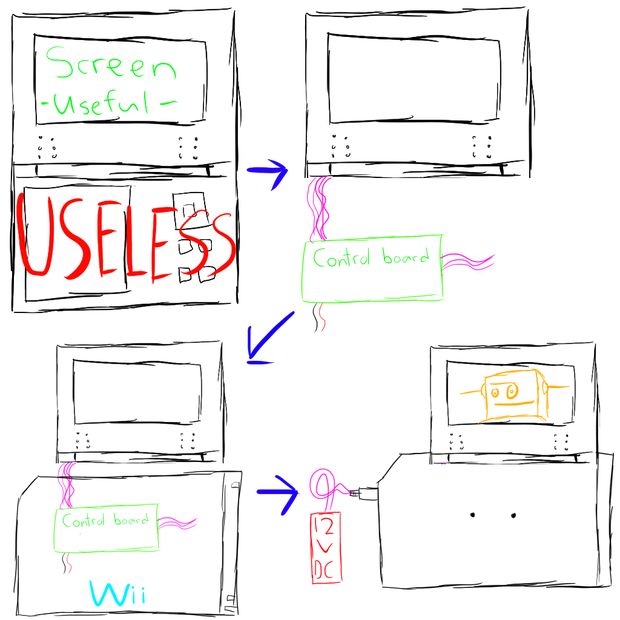 Screen
-Useful-
USELESS
Control board
Control board
Wii
12
V
DC